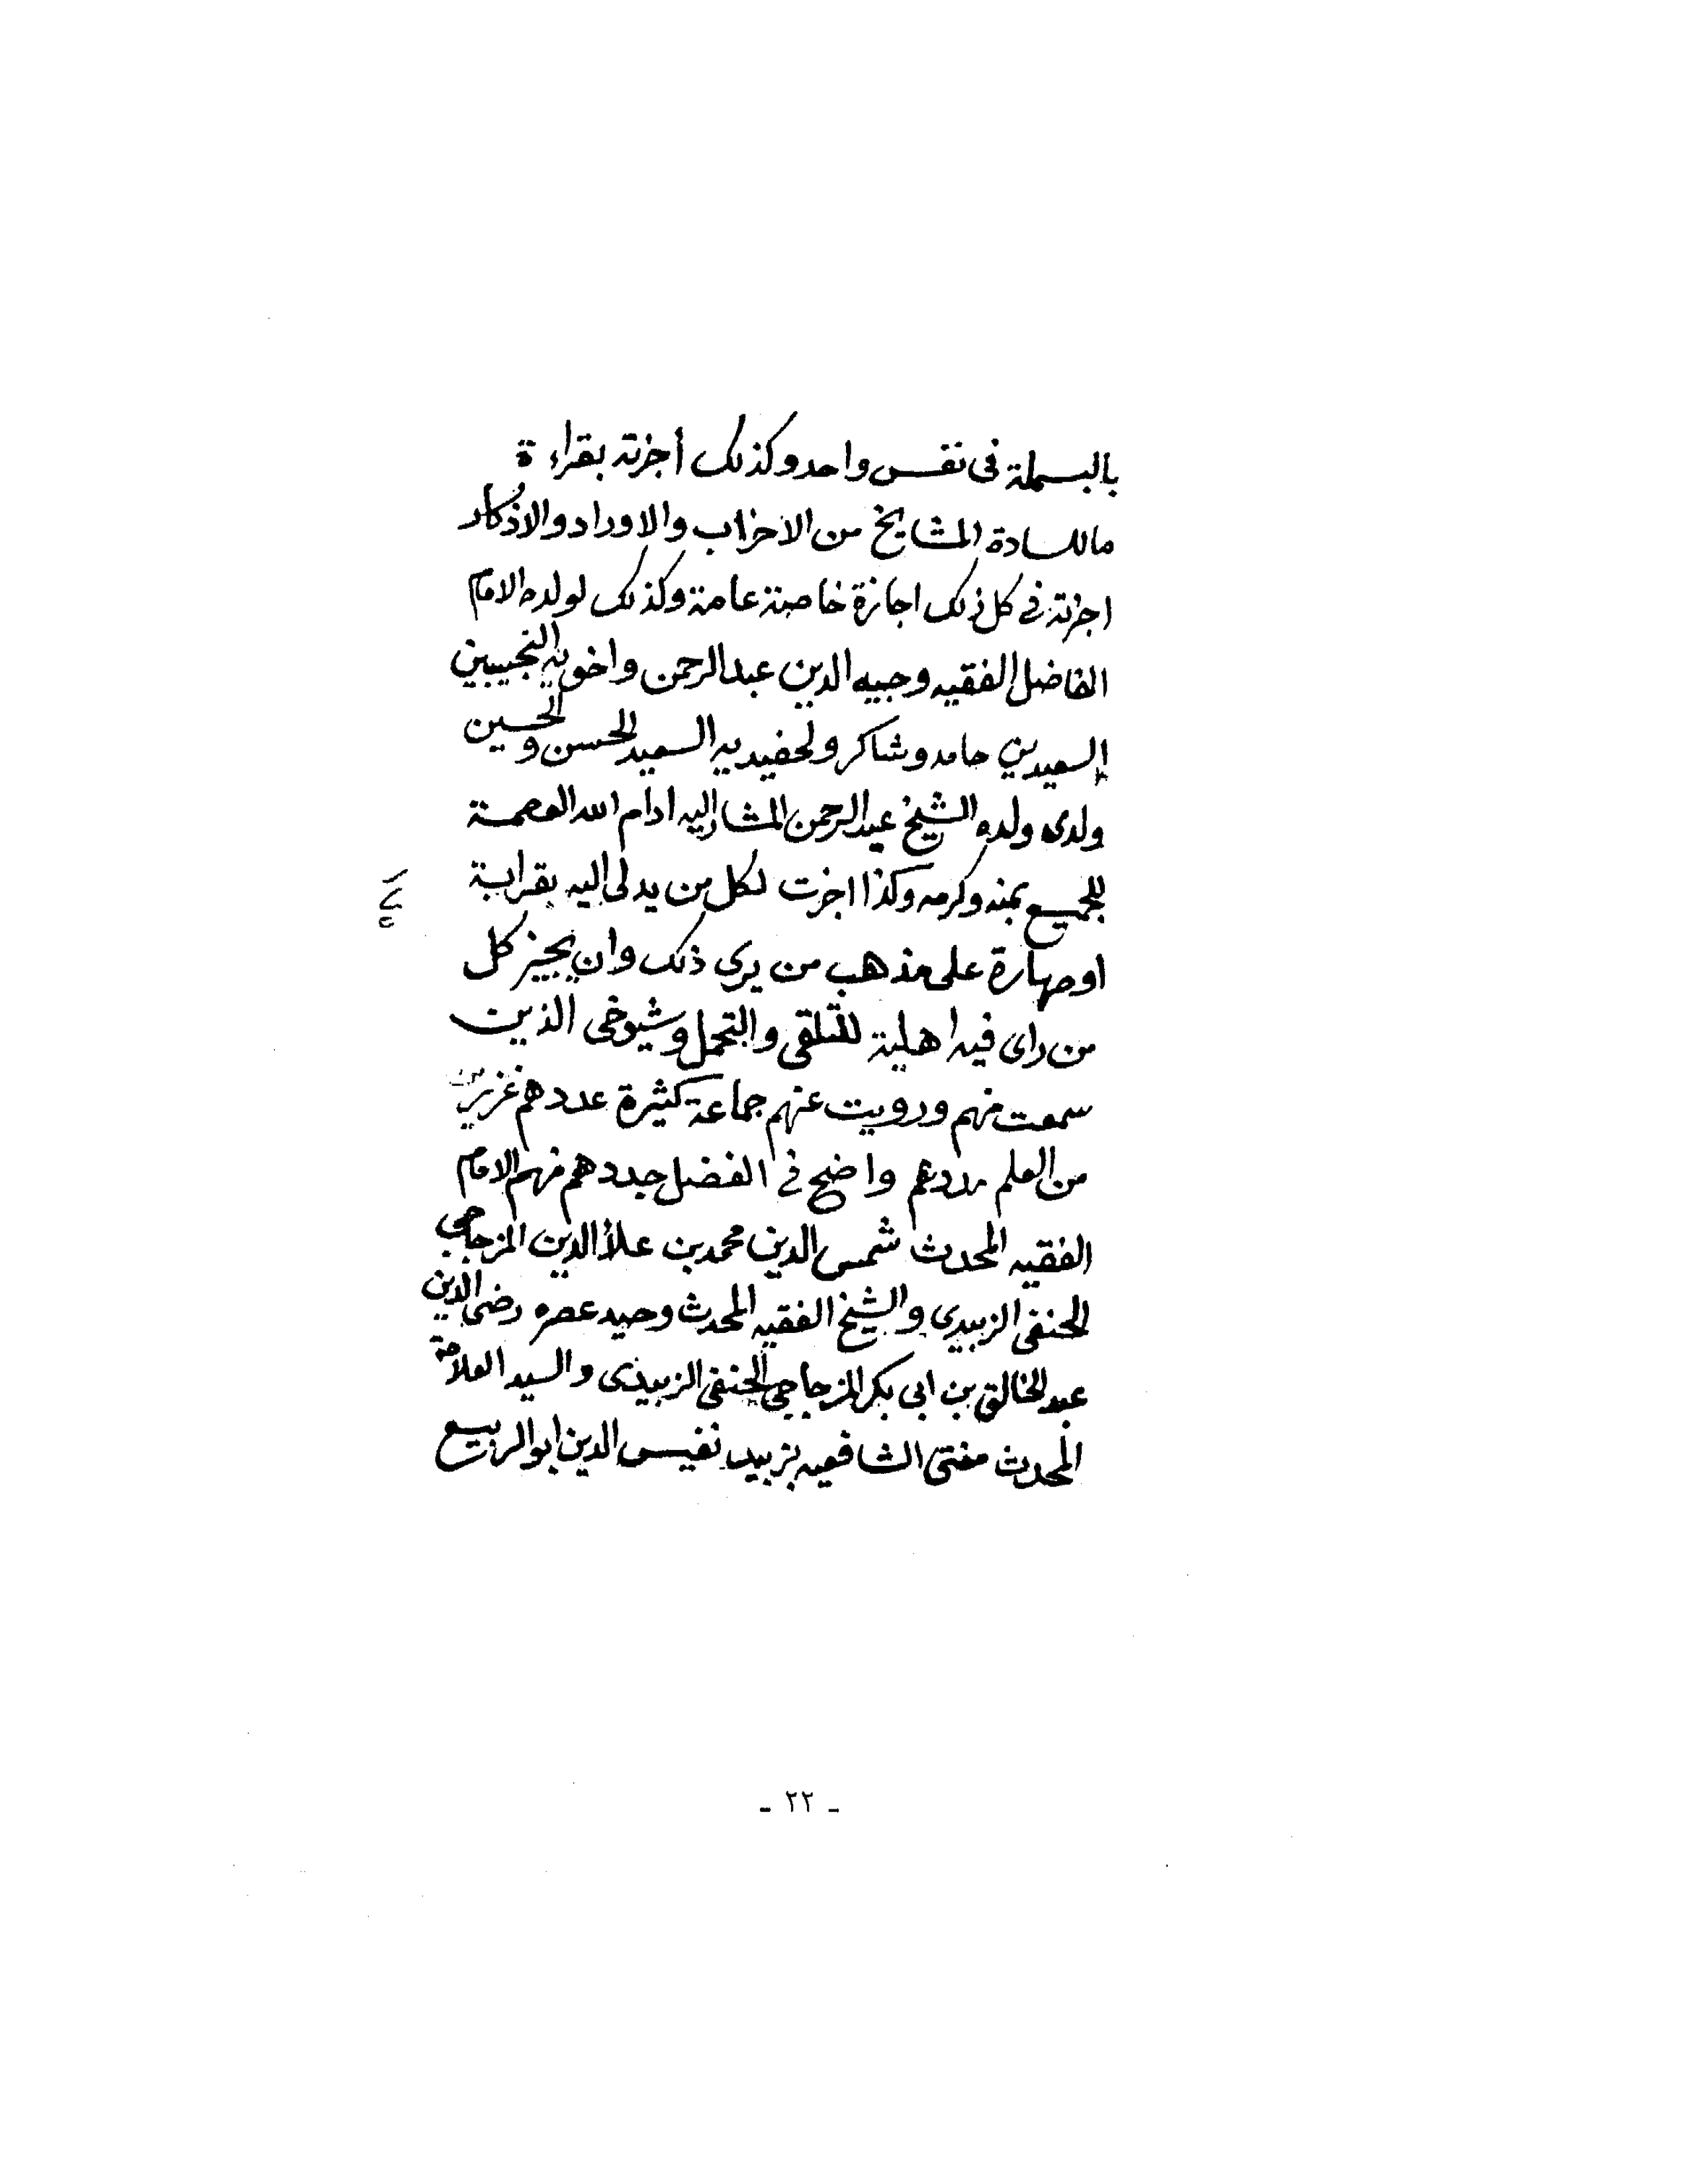 بالبسملة فى نفس واحد وكذلك أجزته بقراءة
ما للسادة المشايخ من الاحزاب والاوراد والاذكار
اجزته في كل ذلك اجازة خاصة عامة وكذلك لولده الامام
الفاضل الفقيه وجيه الدين عبد الرحمن واخويه النجيبين
السعيدين حامد وشاكر ولحفيديه السعيد الحسن والحسين
ولدى ولده الشيخ عبد الرحمن المشار اليه ادام الله العصمة
للجميع بمنه وكرمه وكذا اجزت لكل من يدلى اليه بقرابة
او صهارة على مذهب من يرى ذلك وان يجيز كل
من راى فيه اهلية للتلقى والتحمل وشيوخى الذين
سمعت منهم ورويت عنهم جماعة كثيرة عددهم غزير
من العلم مددهم واضح في الفضل جددهم منهم الامام
الفقيه المحدث شمس الدين محمد بن علأ الدين المزجاجى
الحنفى الزبيدى والشيخ الفقيه المحدث وحيد عصره رضى الدين
عبد الخالق بن ابى بكر المزجاجى الحنفى الزبيدى والسيد العلامة
المحدث مفتى الشافعيه بزبيد نفيس الدين ابو الربيع
- ٢٢ -